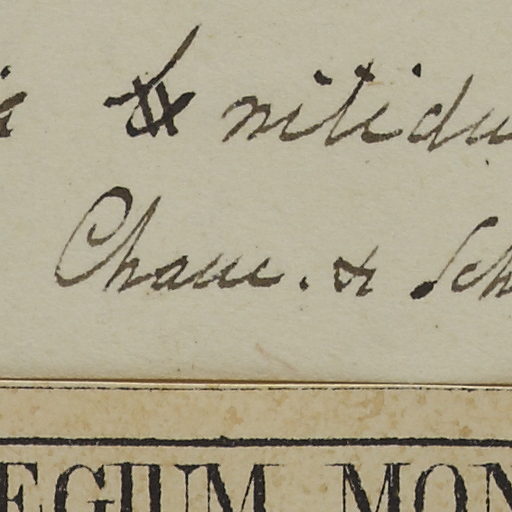 nitidu
Cham. & Sch
EGIUM MON